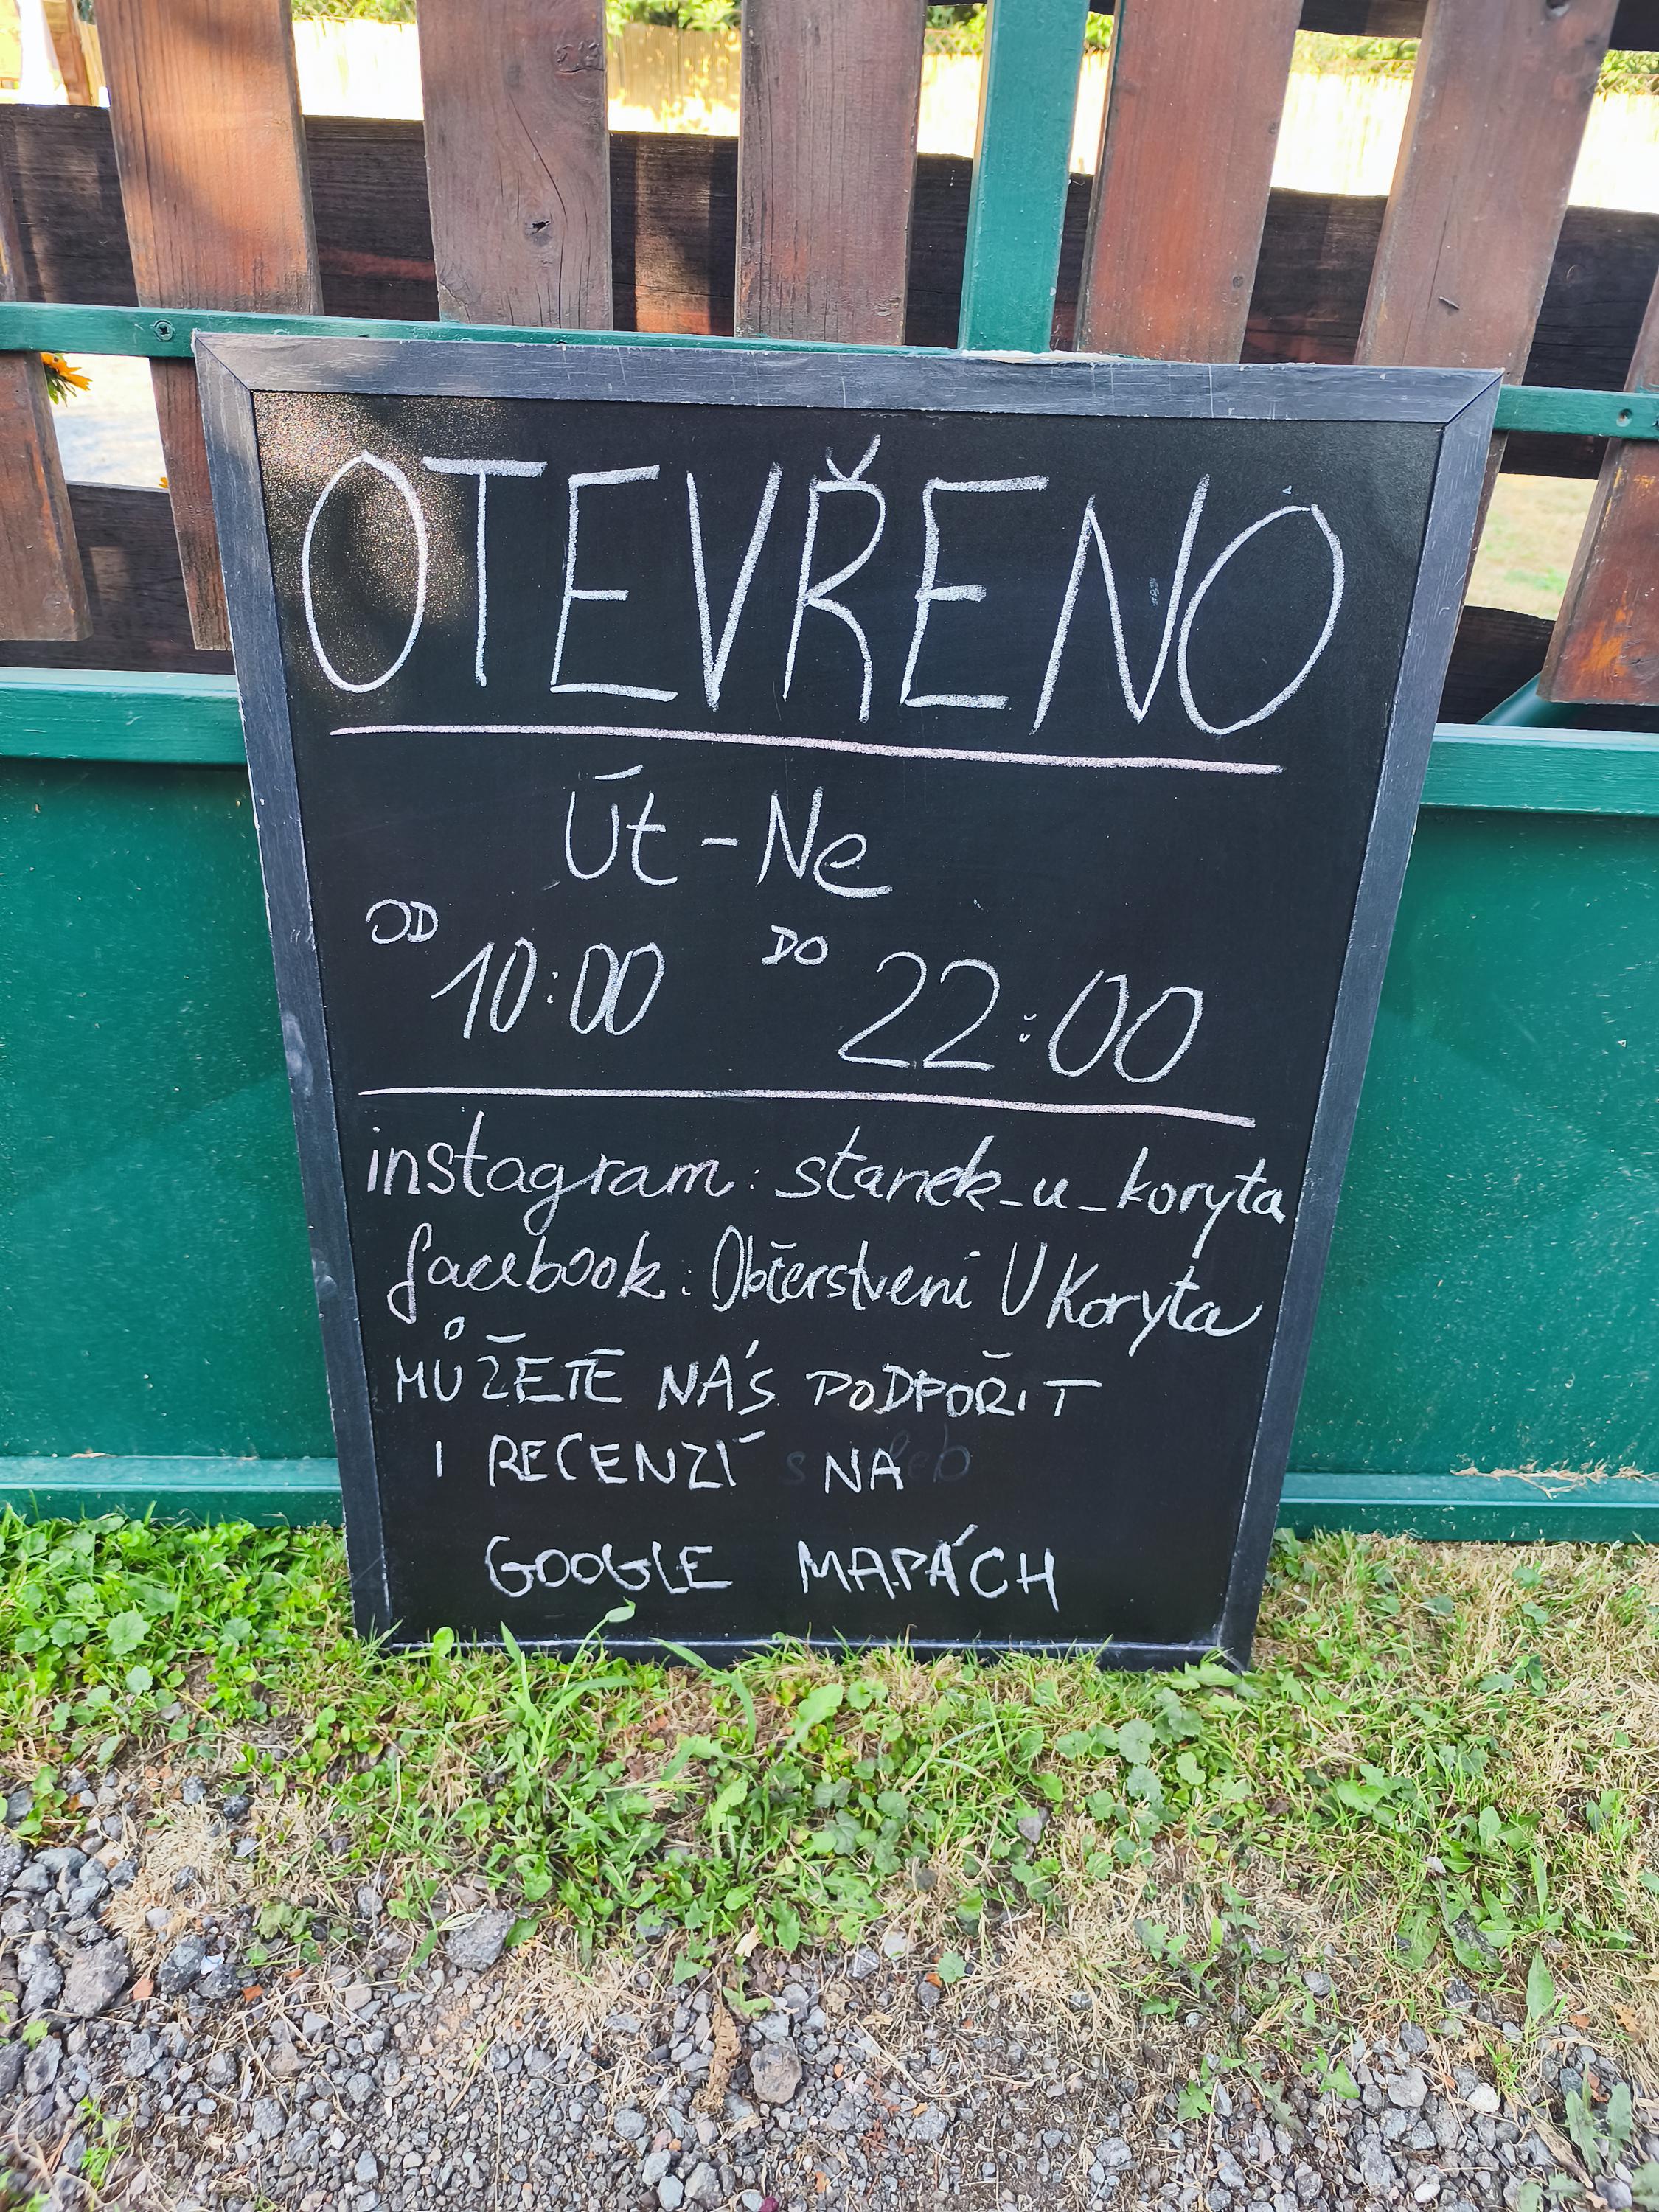 OTEVŘENO
Út - Ne
OD 10:00 DO 22:00
instagram: stanek_u_koryta
facebook: Občerstveni U Koryta
MŮŽETE NÁS PODPOŘIT
I RECENZÍ NA
GOOGLE MAPÁCH